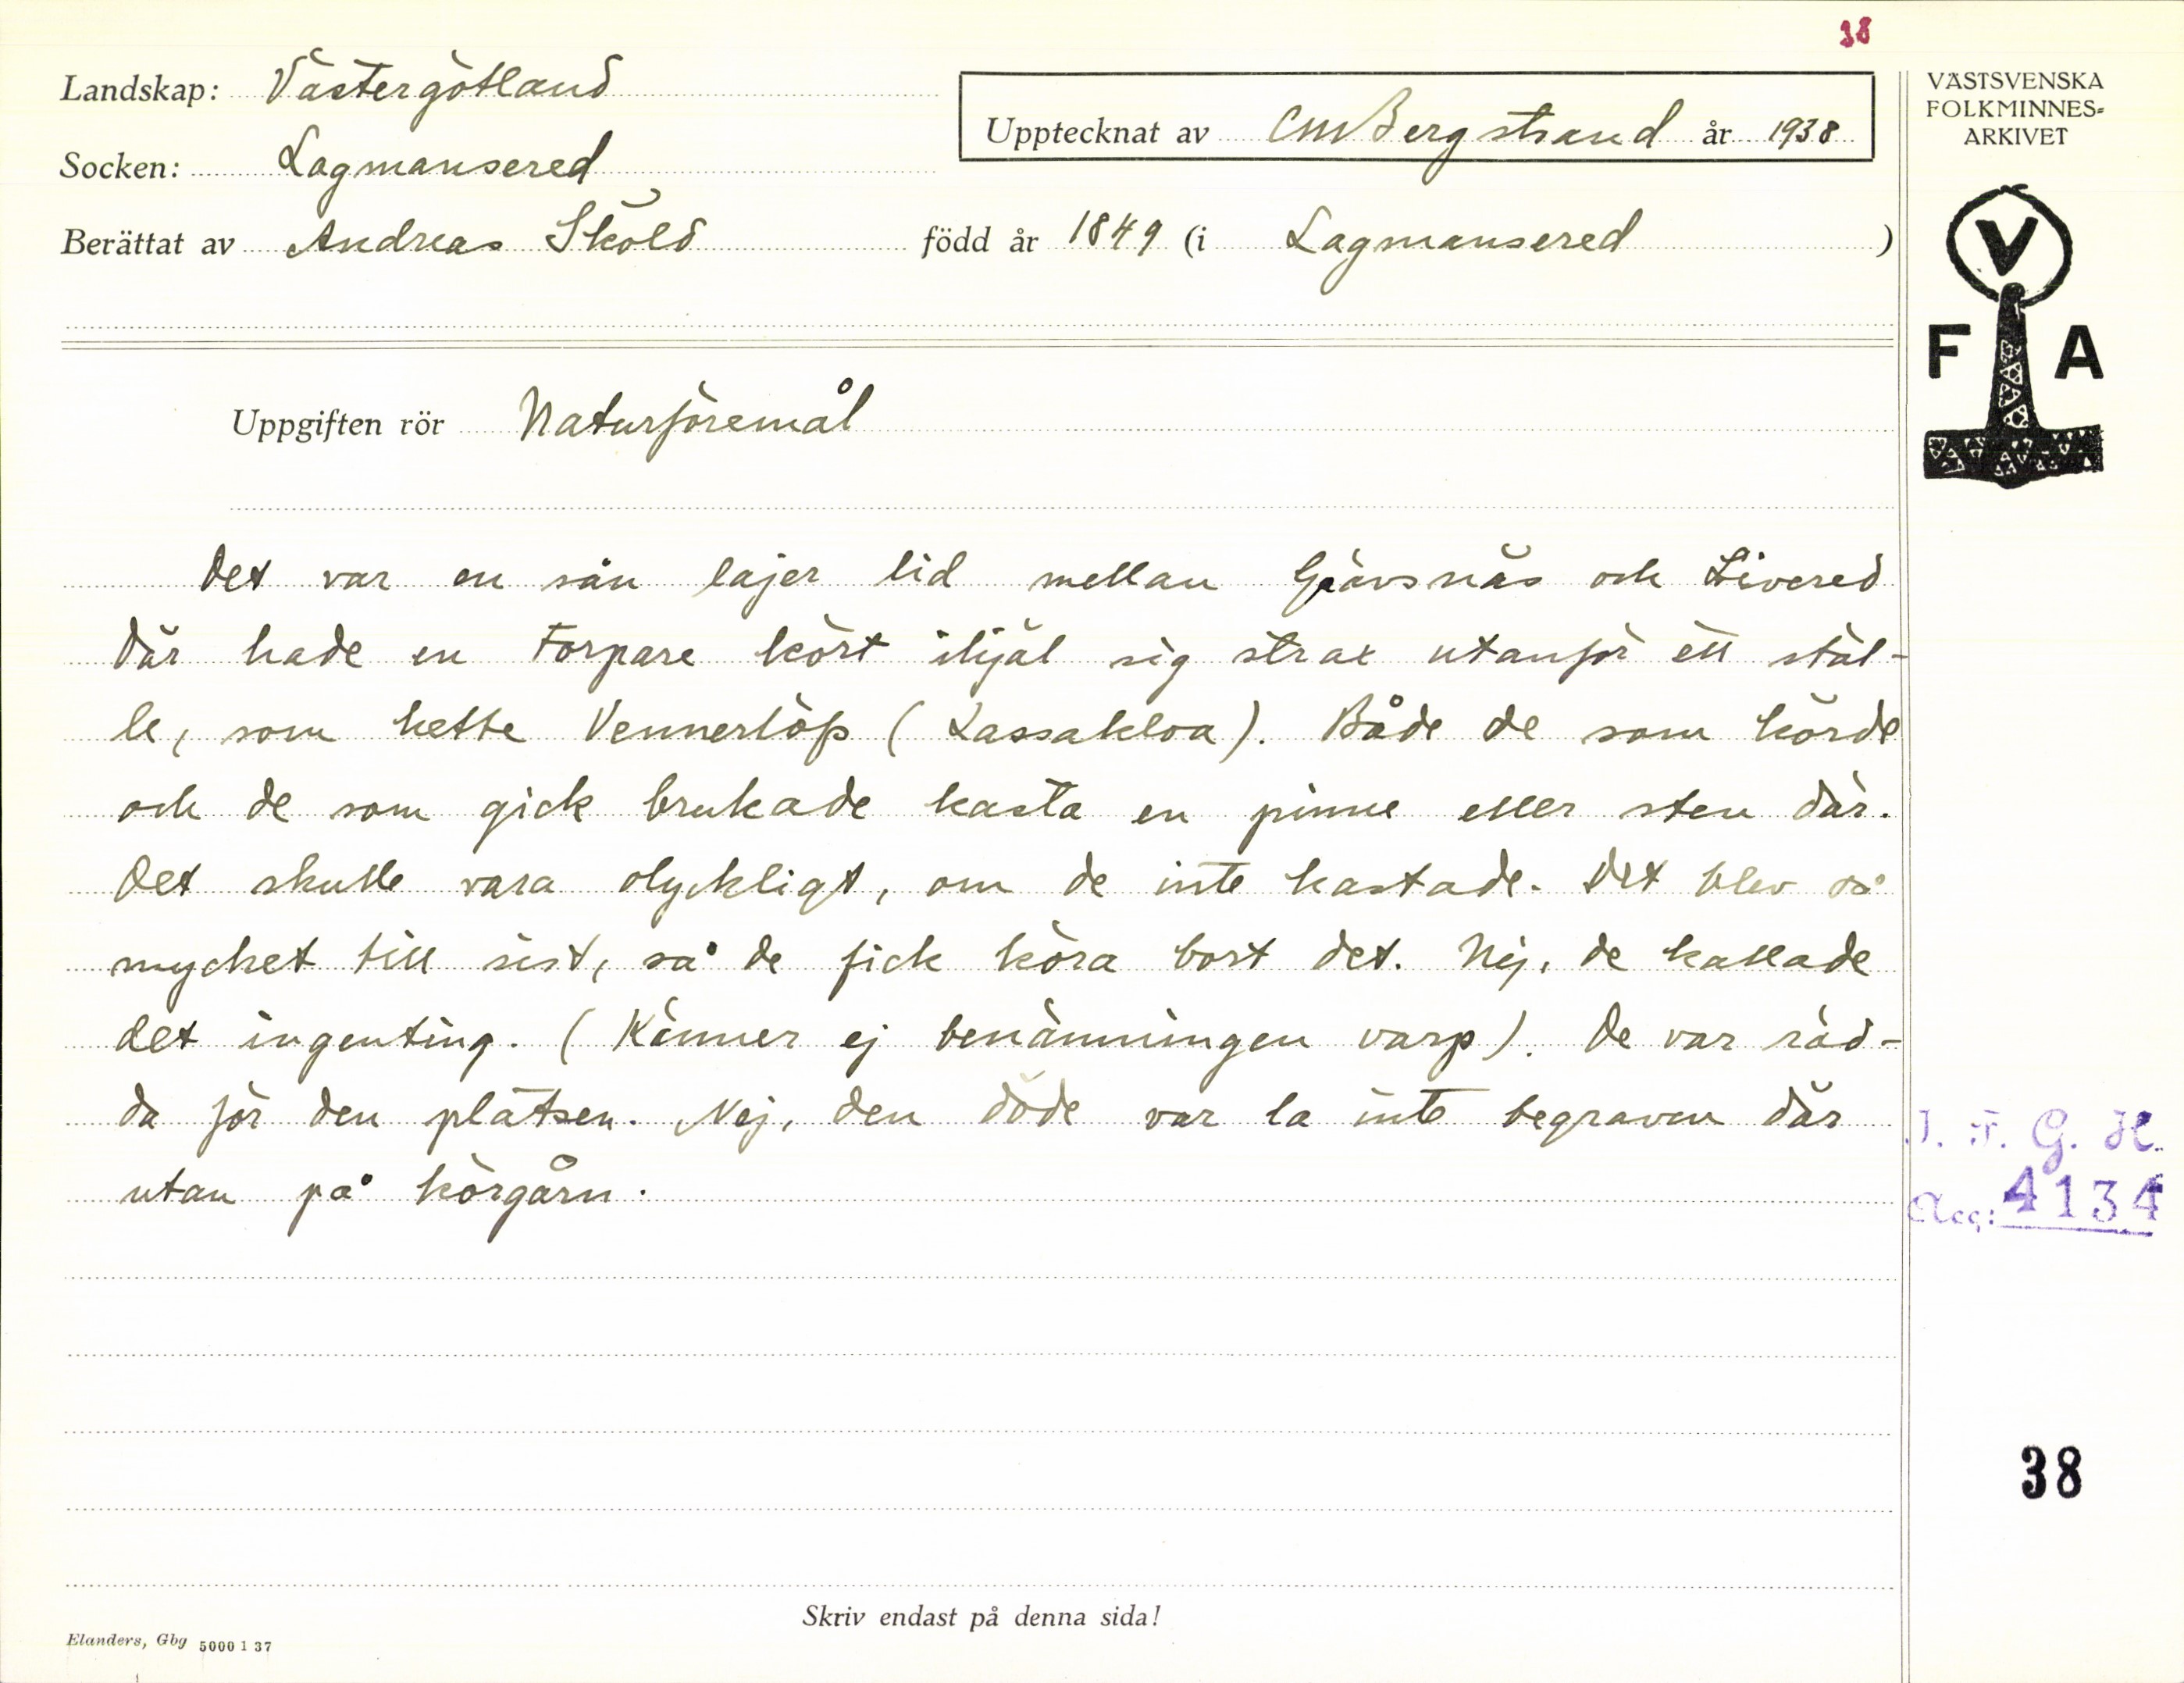 38
Landskap: Västergötland
Upptecknat av CMBergstrand år 1938
VÄSTSVENSKA
FOLKMINNES=
ARKIVET
Socken: Lagmansered
Berättat av Andreas Sköld född år 1849 (i Lagmansered )
V
F A
Uppgiften rör Naturföremål
Det var en sån lajer lid mellan Grävsnäs och Livered
där hade en torpare kört ihjäl sig strax utanför ett stäl-
le, som hette Vennerlöfs (Lassakloa). Både de som körde
och de som gick brukade kasta en pinne eller sten där.
Det skulle vara olyckligt, om de inte kastade. Det blev så
mycket till sist, så de fick köra bort det. Nej, de kallade
det ingenting. (Känner ej benämningen varp). De var räd-
da för den platsen. Nej, den döde var la inte begraven där
utan på körgårn.
I. F. G. H.
Acc: 4134
38
Skriv endast på denna sida!
Elanders, Gbg 5000 1 37